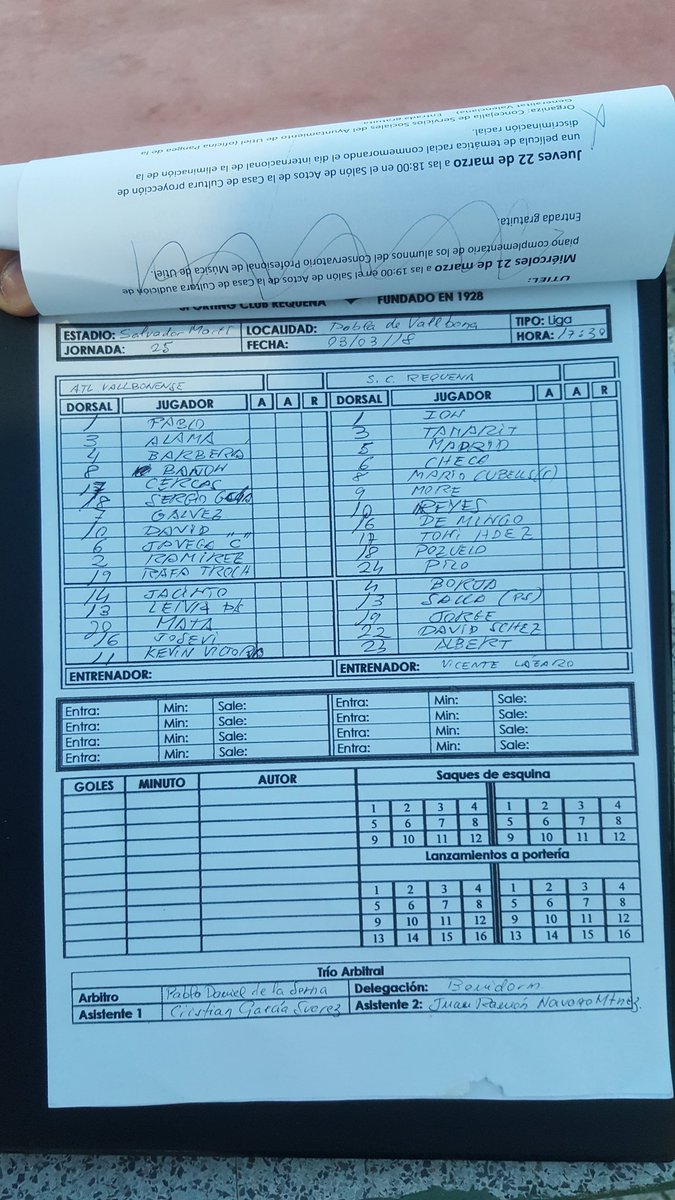 Organiza: Concejalía de Servicios Sociales del Ayuntamiento de Utiel (oficina Pangea de la
Generalitat Valenciana). Entrada gratuita
discriminación racial.
una película de temática racial conmemorando el día internacional de la eliminación de la
Jueves 22 de marzo a las 18:00 en el Salón de Actos de la Casa de Cultura proyección de
Entrada gratuita.
piano complementario de los alumnos del Conservatorio Profesional de Música de Utiel.
Miércoles 21 de marzo a las 19:00 en el Salón de Actos de la Casa de Cultura audición de
UTIEL:
SPORTING CLUB REQUENA FUNDADO EN 1928
ESTADIO: Salvador Martí LOCALIDAD: Pobla de Vallbona TIPO: Liga
JORNADA: 25 FECHA: 03/03/18 HORA: 17:30
ATL VALLBONENSE S. C. REQUENA
DORSAL JUGADOR A A R DORSAL JUGADOR A A R
1 PABLO 1 ION
3 ALAMA 3 TAMARIT
4 BARBERA 5 MADRID
8 BAÑON 6 CHECA
17 CERCOS 8 MARIO CUBELLS (C)
18 SERGIO 9 MORE
7 GALVEZ 10 REYES
10 DAVID 16 DE MINGO
6 JAVEGA C 17 TOMI HDEZ
2 RAMIREZ 18 POZUELO
19 RAFA TROCH 24 PIRO
14 JACINTO 4 BORJA
13 LEIVA PS 13 SALVA (PS)
20 MATA 19 JORGE
16 JOSEVI 22 DAVID SCHEZ
11 KEVIN VICTOR 23 ALBERT
ENTRENADOR: ENTRENADOR: VICENTE LÁZARO
Entra: Min: Sale: Entra: Min: Sale:
Entra: Min: Sale: Entra: Min: Sale:
Entra: Min: Sale: Entra: Min: Sale:
Entra: Min: Sale: Entra: Min: Sale:
GOLES MINUTO AUTOR Saques de esquina
1 2 3 4 1 2 3 4
5 6 7 8 5 6 7 8
9 10 11 12 9 10 11 12
Lanzamientos a portería
1 2 3 4 1 2 3 4
5 6 7 8 5 6 7 8
9 10 11 12 9 10 11 12
13 14 15 16 13 14 15 16
Trío Arbitral
Arbitro Pablo Daniel de la Serna Delegación: Benidorm
Asistente 1 Cristian García Suarez Asistente 2: Juan Ramón Navarro Mtnez.